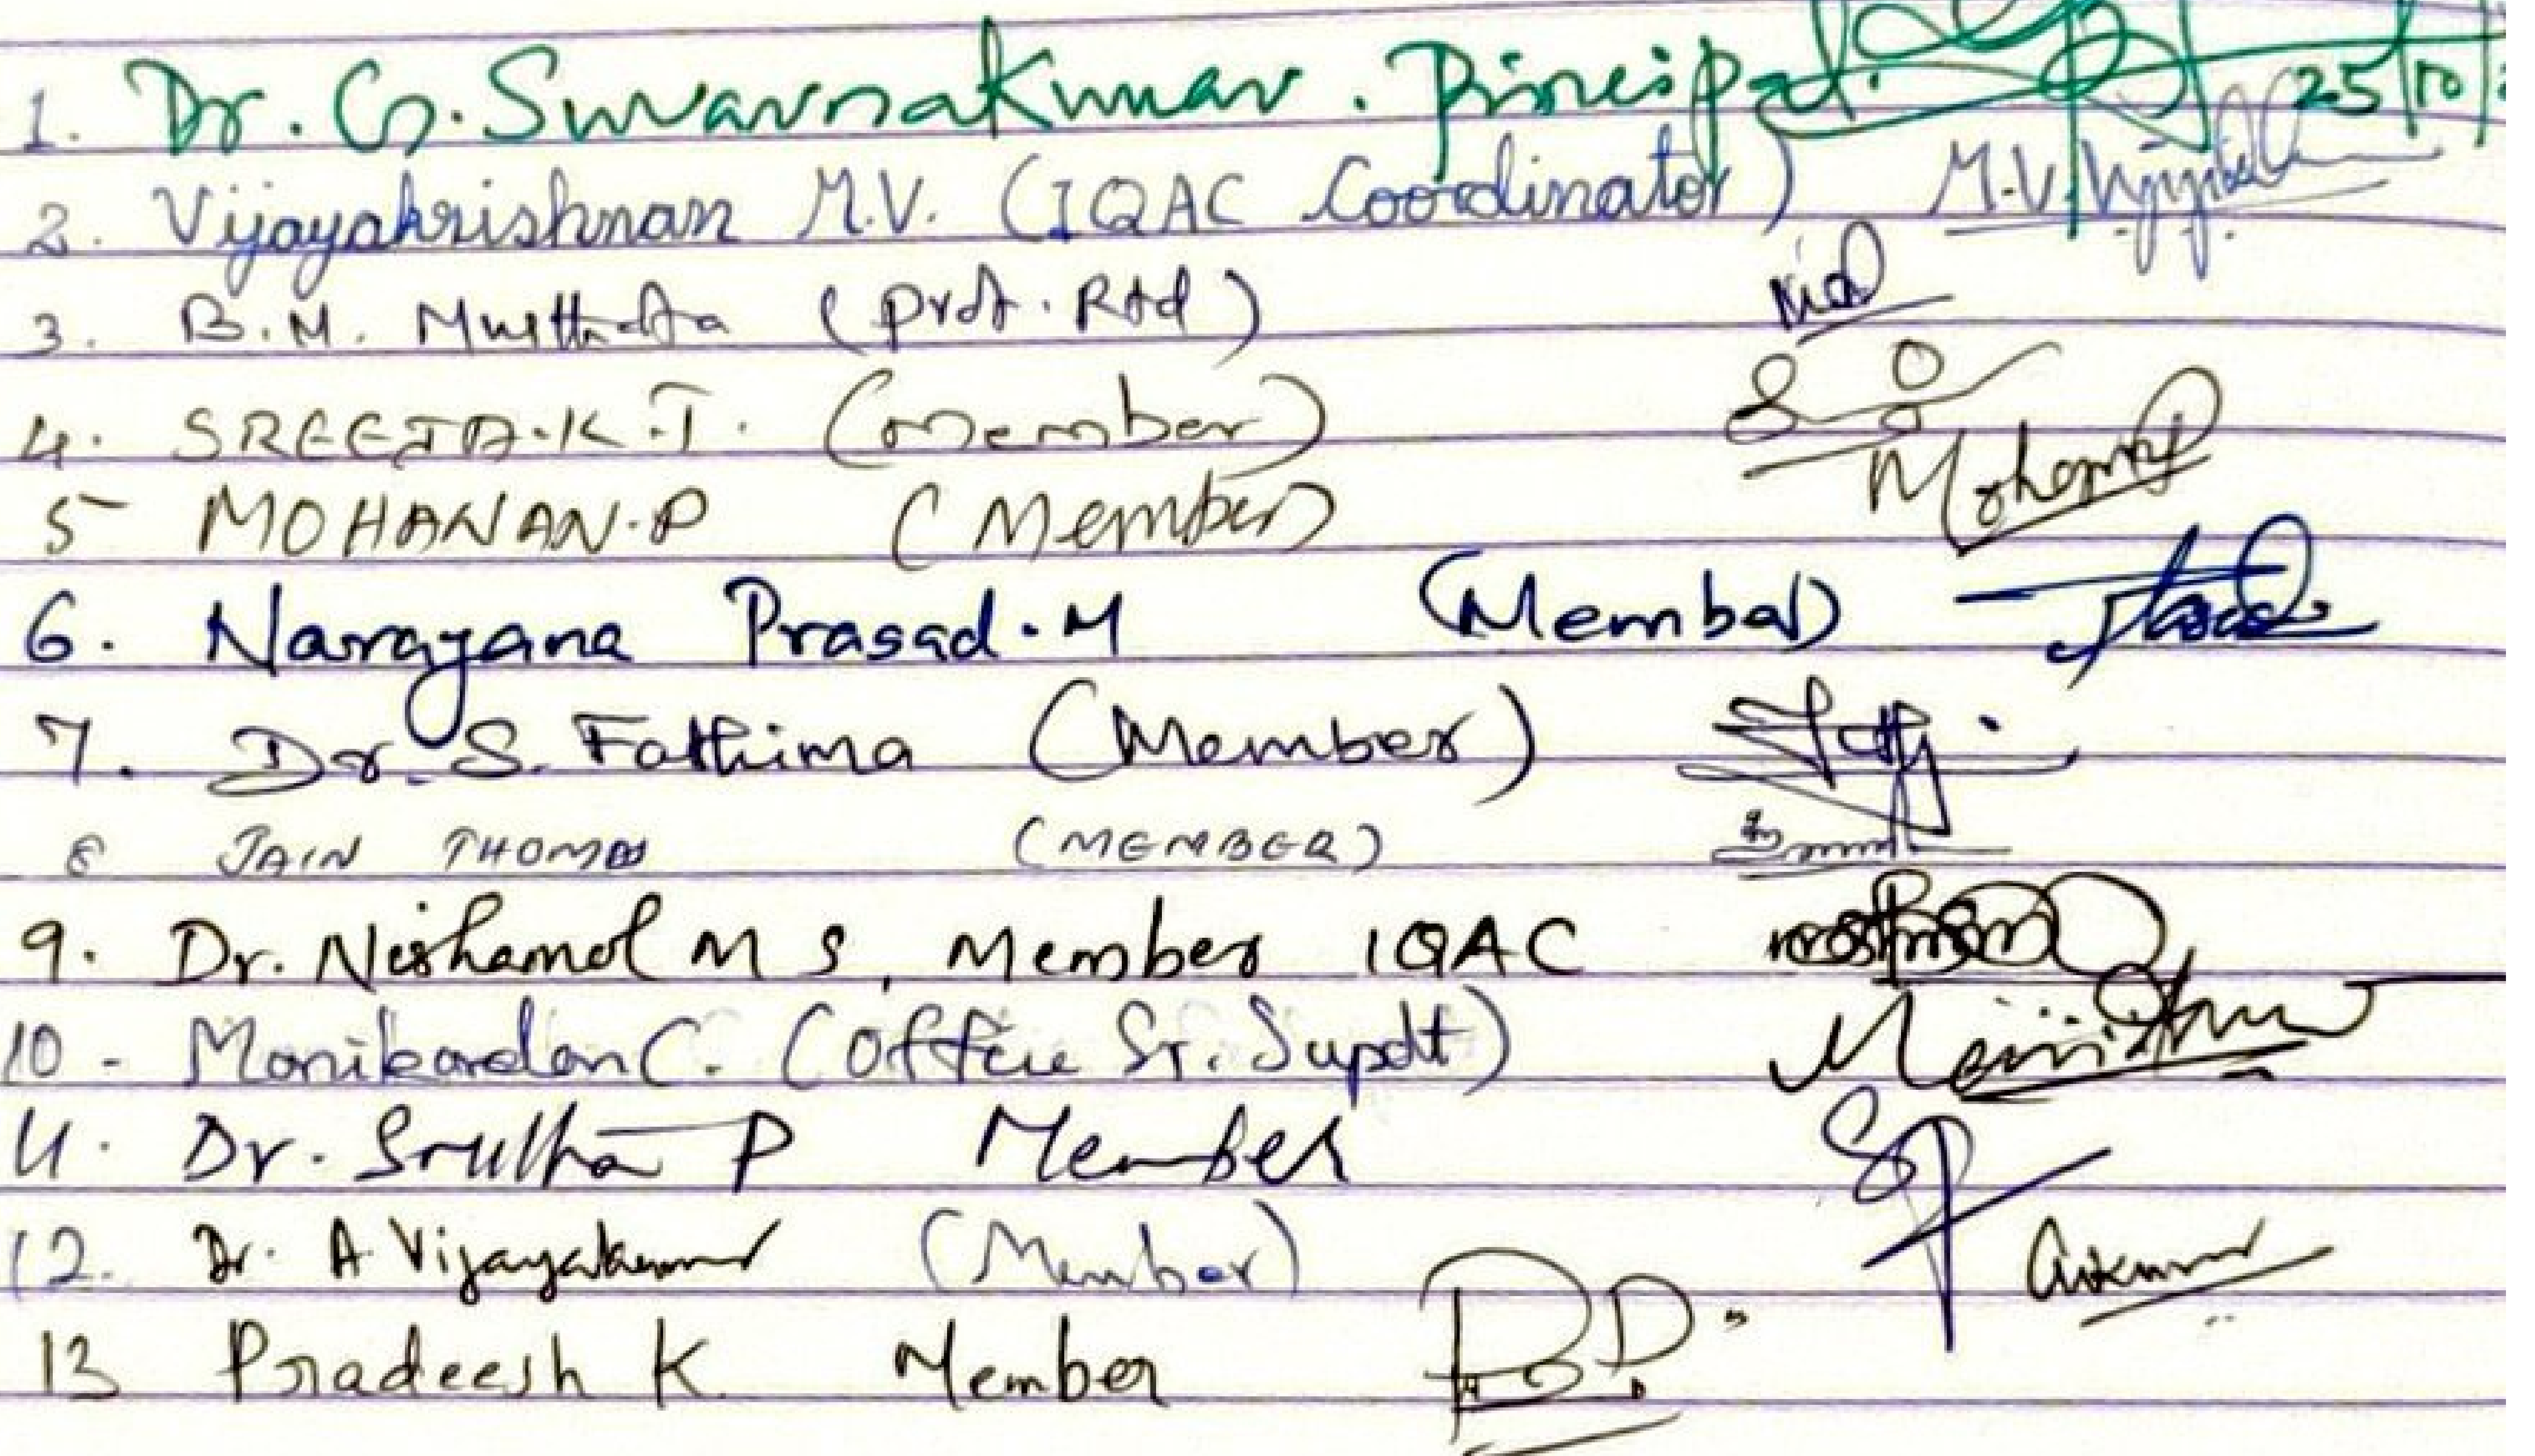 1. Dr. G. Suvarnakumar. Principal. 25/10/
2. Vijayakrishnan M.V. (IQAC Coordinator) M.V.
3. B.M. Musthafa (Prof. Rtd)
4. SREEJA.K.T. (Member)
5 MOHANAN.P (Member)
6. Narayana Prasad.M (Member)
7. Dr. S. Fathima (Member)
8 JAIN THOMAS (MEMBER)
9. Dr. Nishamol M S, Member IQAC
10 - Manikandan C. (Office Sr. Supdt)
11. Dr. Srutha P Member
12. Dr. A Vijayakumar (Member)
13 Pradeesh K Member